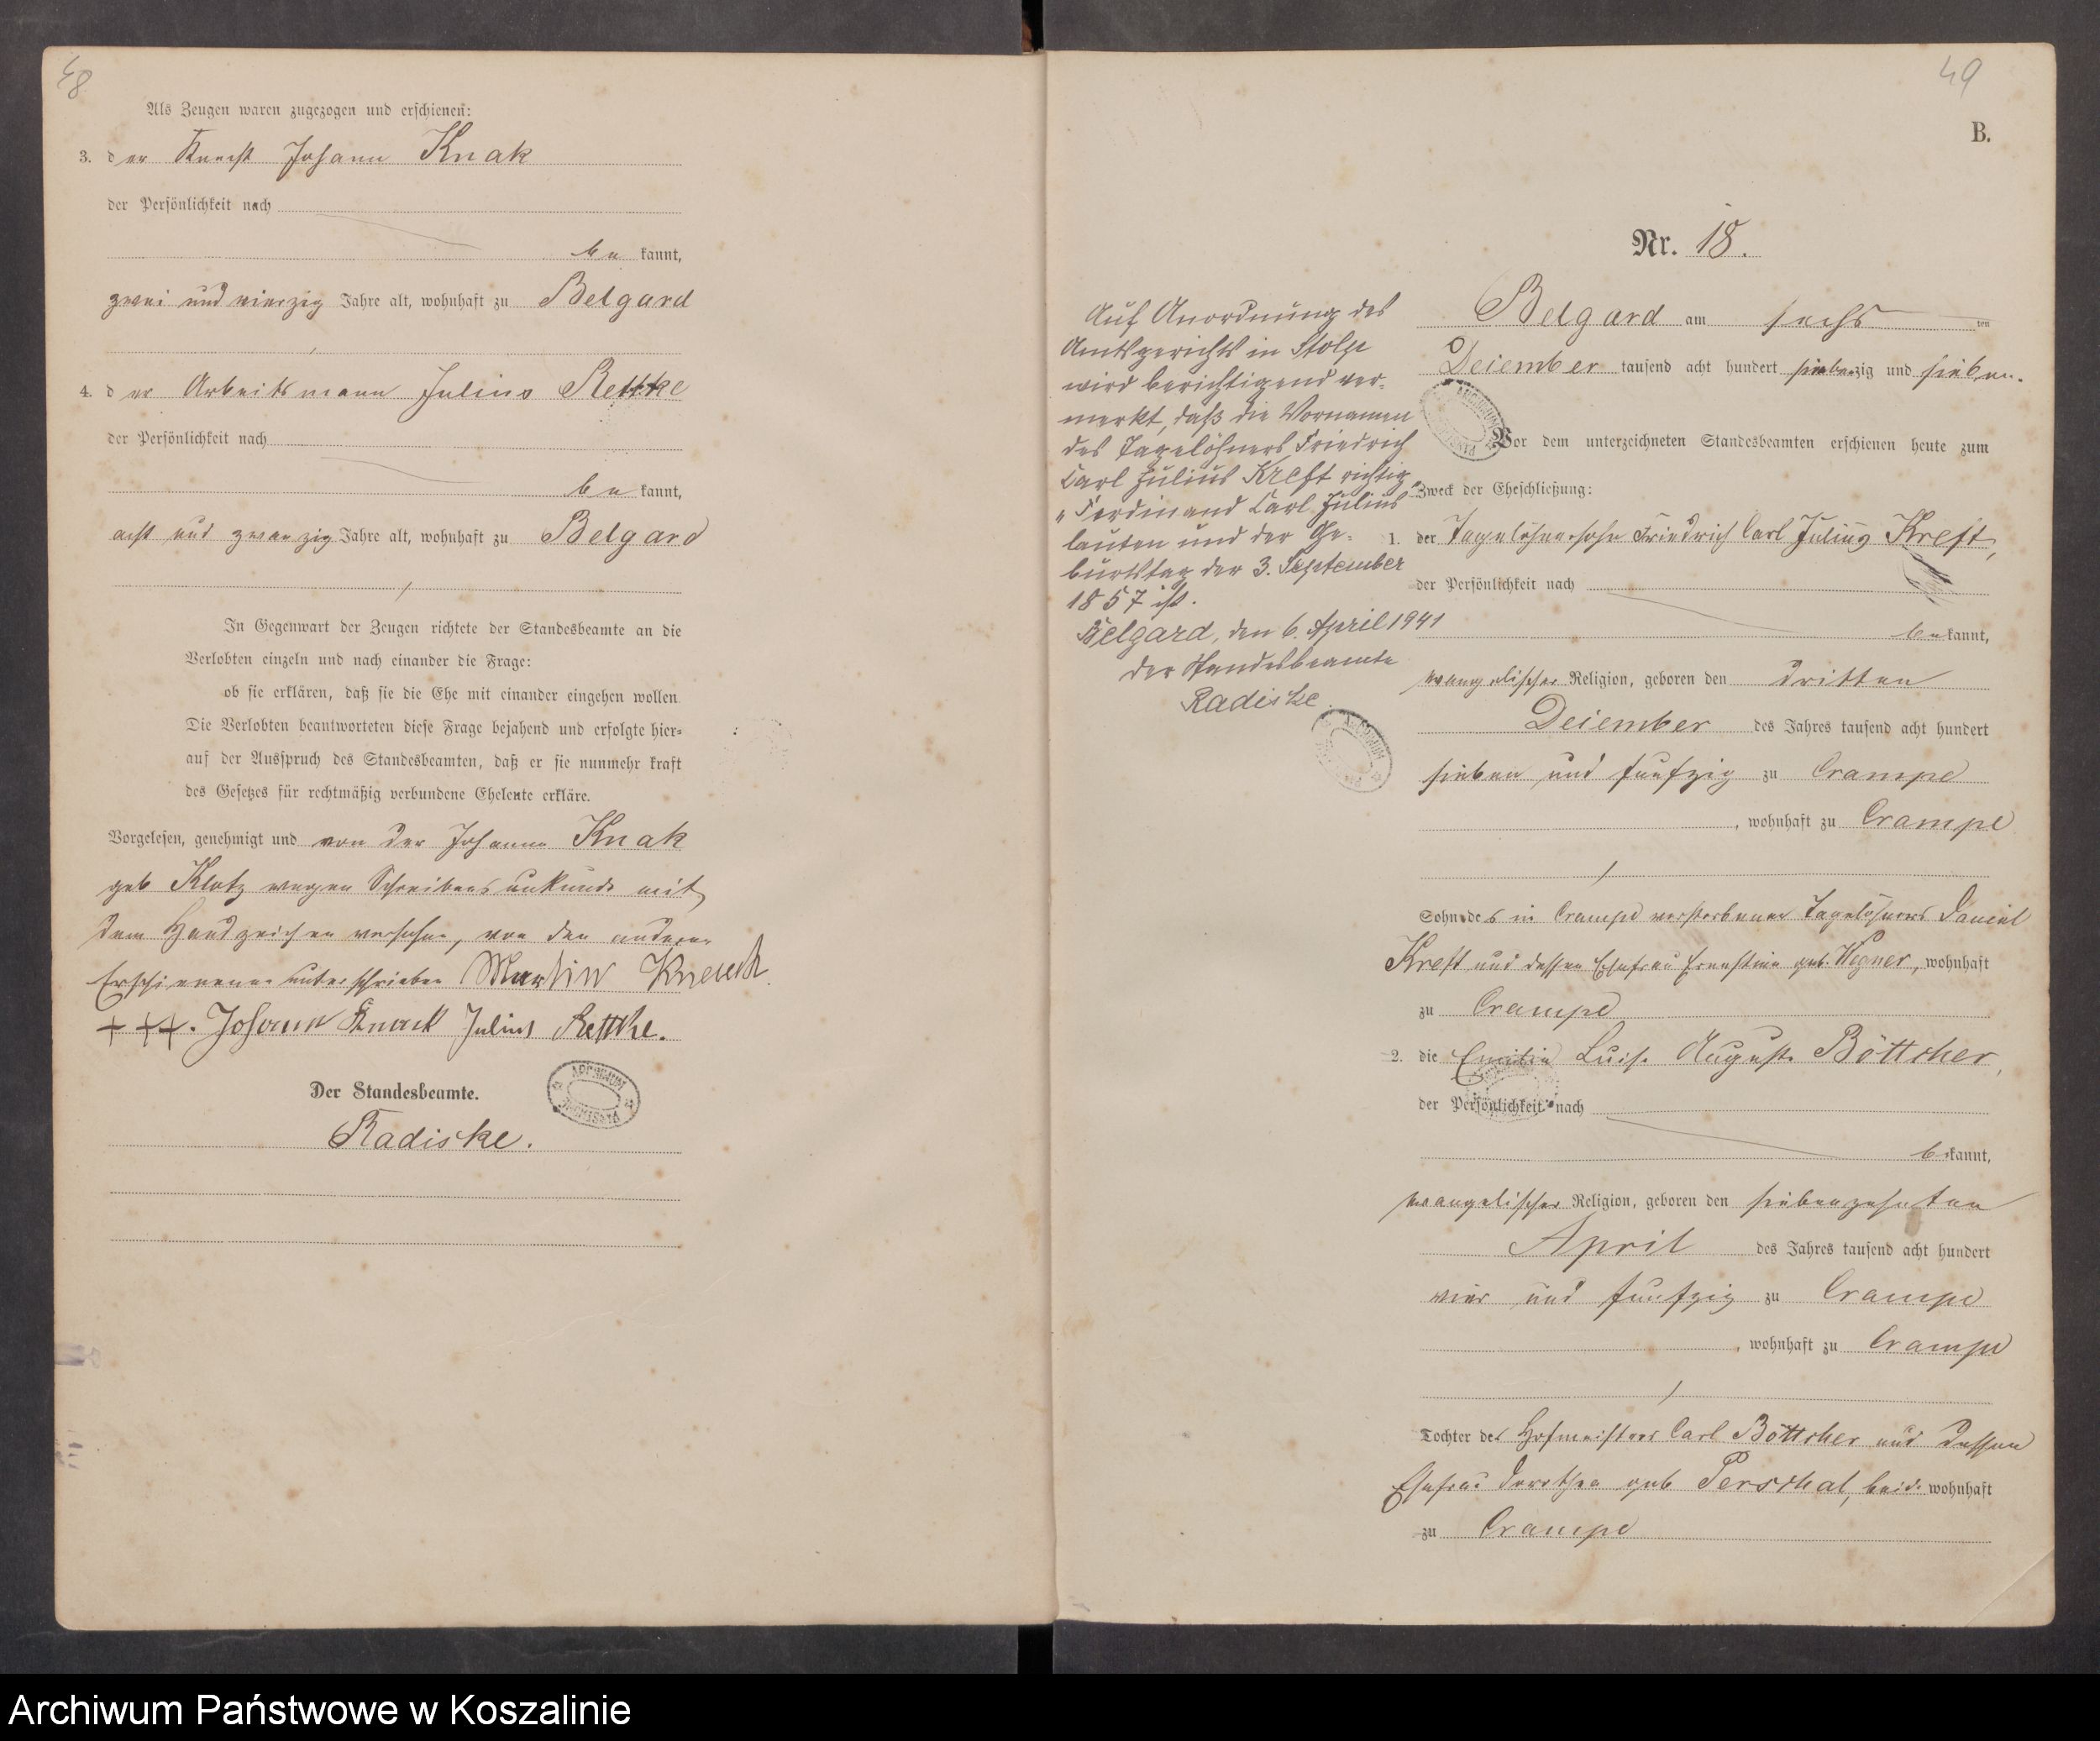 48
Als Zeugen waren zugezogen und erschienen:
3. der Knecht Johann Knak
der Persönlichkeit nach
be kannt,
zwei und vierzig Jahre alt, wohnhaft zu Belgard
4. der Arbeitsmann Julius Rettke
der Persönlichkeit nach
be kannt,
acht und zwanzig Jahre alt, wohnhaft zu Belgard
In Gegenwart der Zeugen richtete der Standesbeamte an die
Verlobten einzeln und nach einander die Frage:
ob sie erklären, daß sie die Ehe mit einander eingehen wollen.
Die Verlobten beantworteten diese Frage bejahend und erfolgte hier=
auf der Ausspruch des Standesbeamten, daß er sie nunmehr kraft
des Gesetzes für rechtmäßig verbundene Eheleute erkläre.
Vorgelesen, genehmigt und von der Johanne Knak
geb Klotz wegen Schreibensunkunde mit
dem Handzeichen versehen, von den anderen
Erschienenen unterschrieben Martin
+++. Johann Knack Julius Rettke.
Der Standesbeamte.
Radiske.
ARCHIWUM PAŃSTWOWE
49
B.
Nr. 18.
Belgard am sechs ten
Dezember tausend acht hundert siebenzig und sieben.
Vor dem unterzeichneten Standesbeamten erschienen heute zum
Zweck der Eheschließung:
1. der Tagelöhnersohn Friedrich Carl Julius Kreft,
der Persönlichkeit nach
be kannt,
evangelischer Religion, geboren den dritten
Dezember des Jahres tausend acht hundert
sieben und funfzig zu Crampe
, wohnhaft zu Crampe
Sohn des in Crampe verstorbenen Tagelöhners Daniel
Kreft und dessen Ehefrau Ernestine geb. Wegner, wohnhaft
zu Crampe
2. die Emilie Luise Auguste Böttcher,
der Persönlichkeit nach
be kannt,
evangelischer Religion, geboren den siebenzehnten
April des Jahres tausend acht hundert
vier und funfzig zu Crampe
, wohnhaft zu Crampe
Tochter des Hofmeisters Carl Böttcher und dessen
Ehefrau Dorothea geb Perschal, beide wohnhaft
zu Crampe
Auf Anordnung des
Amtsgerichts in Stolp
wird berichtigend ver-
merkt, daß die Vornamen
des Tagelöhners Friedrich
Carl Julius Kreft richtig
"Ferdinand Carl Julius"
lauten und der Ge-
burtstag der 3. September
1857 ist.
Belgard, den 6. April 1941
Der Standesbeamte
Radiske.
Archiwum Państwowe w Koszalinie